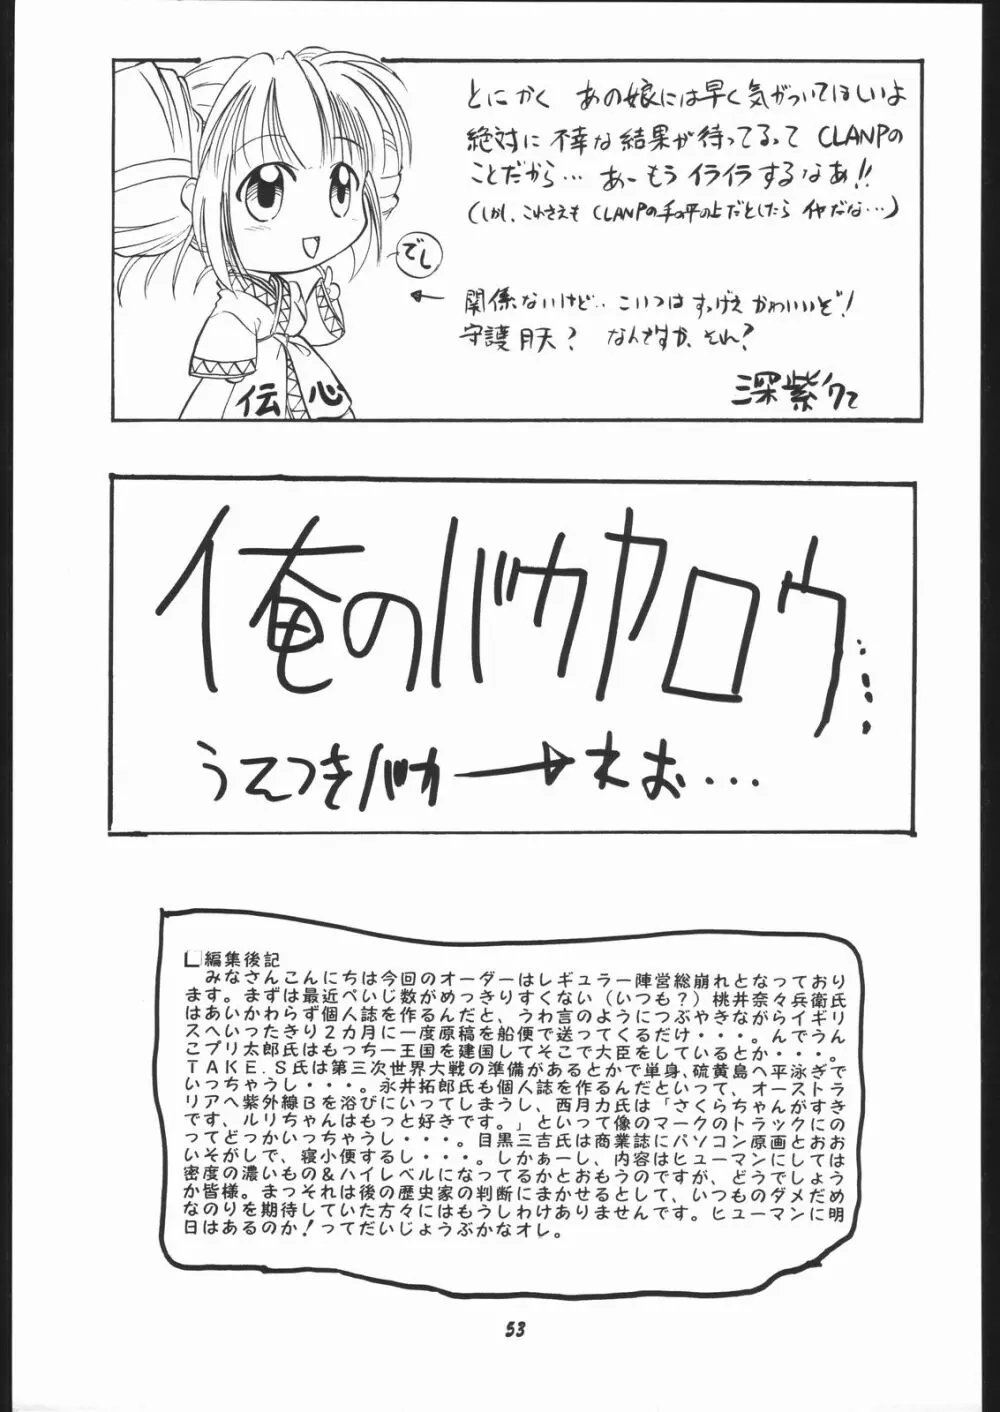 とにかく あの娘には早く気がついてほしいよ
絶対に不幸な結果が待ってるって CLANPの
ことだから… あーもうイライラするなあ!!
(しかし、これさえも CLANPの手の平の上だとしたら イヤだな…)
でし
←関係ないけど‥こいつは すっげえ かわいいぞ!
守護月天? なんですか、それ?
深紫
伝 心
俺のバカヤロウ…
うえつきバカ→ねお…
□編集後記
みなさんこんにちは今回のオーダーはレギュラー陣営総崩れとなっており
ます。まずは最近ぺいじ数がめっきりすくない(いつも?)桃井奈々兵衛氏
はあいかわらず個人誌を作るんだと、うわ言のようにつぶやきながらイギリ
スへいったきり2カ月に一度原稿を船便で送ってくるだけ・・・。んでうん
こプリ太郎氏はもっちー王国を建国してそこで大臣をしているとか・・・。
TAKE.S氏は第三次世界大戦の準備があるとかで単身、硫黄島へ平泳ぎで
いっちゃうし・・・。永井拓郎氏も個人誌を作るんだといって、オーストラ
リアへ紫外線Bを浴びにいってしまうし、西月力氏は「さくらちゃんがすき
です、ルリちゃんはもっと好きです。」といって像のマークのトラックにの
ってどっかいっちゃうし・・・。目黒三吉氏は商業誌にパソコン原画とおお
いそがしで、寝小便するし・・・。しかぁーし、内容はヒューマンにしては
密度の濃いもの&ハイレベルになってるかとおもうのですが、どうでしょう
か皆様。まっそれは後の歴史家の判断にまかせるとして、いつものダメだめ
なのりを期待していた方々にはもうしわけありませんです。ヒューマンに明
日はあるのか!ってだいじょうぶかなオレ。
53